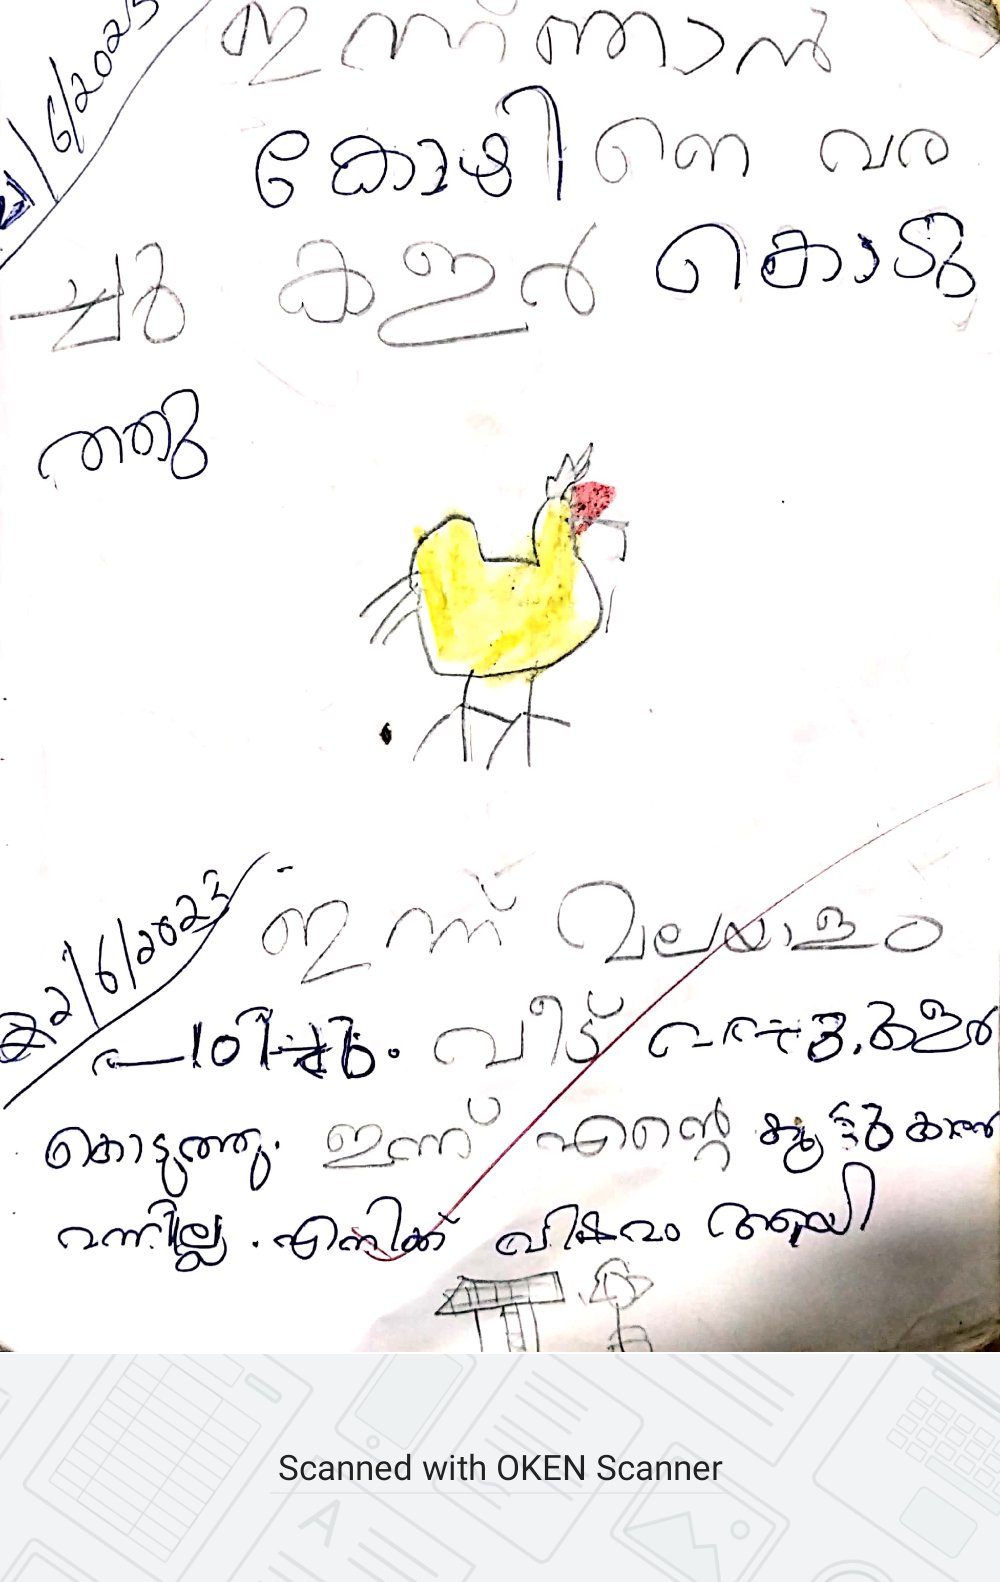 21/6/2023
ഇന്ന് ഞാൻ
കോഴിയെ വര
ച്ചു കളർ കൊടു
ത്തു
22/6/2023
ഇന്ന് മലയാളം
പഠിച്ചു. വീട് വരച്ചു. കളർ
കൊടുത്തു. ഇന്ന് എന്റെ കൂട്ടുകാരൻ
വന്നില്ല. എനിക്ക് വിഷമം ആയി
Scanned with OKEN Scanner